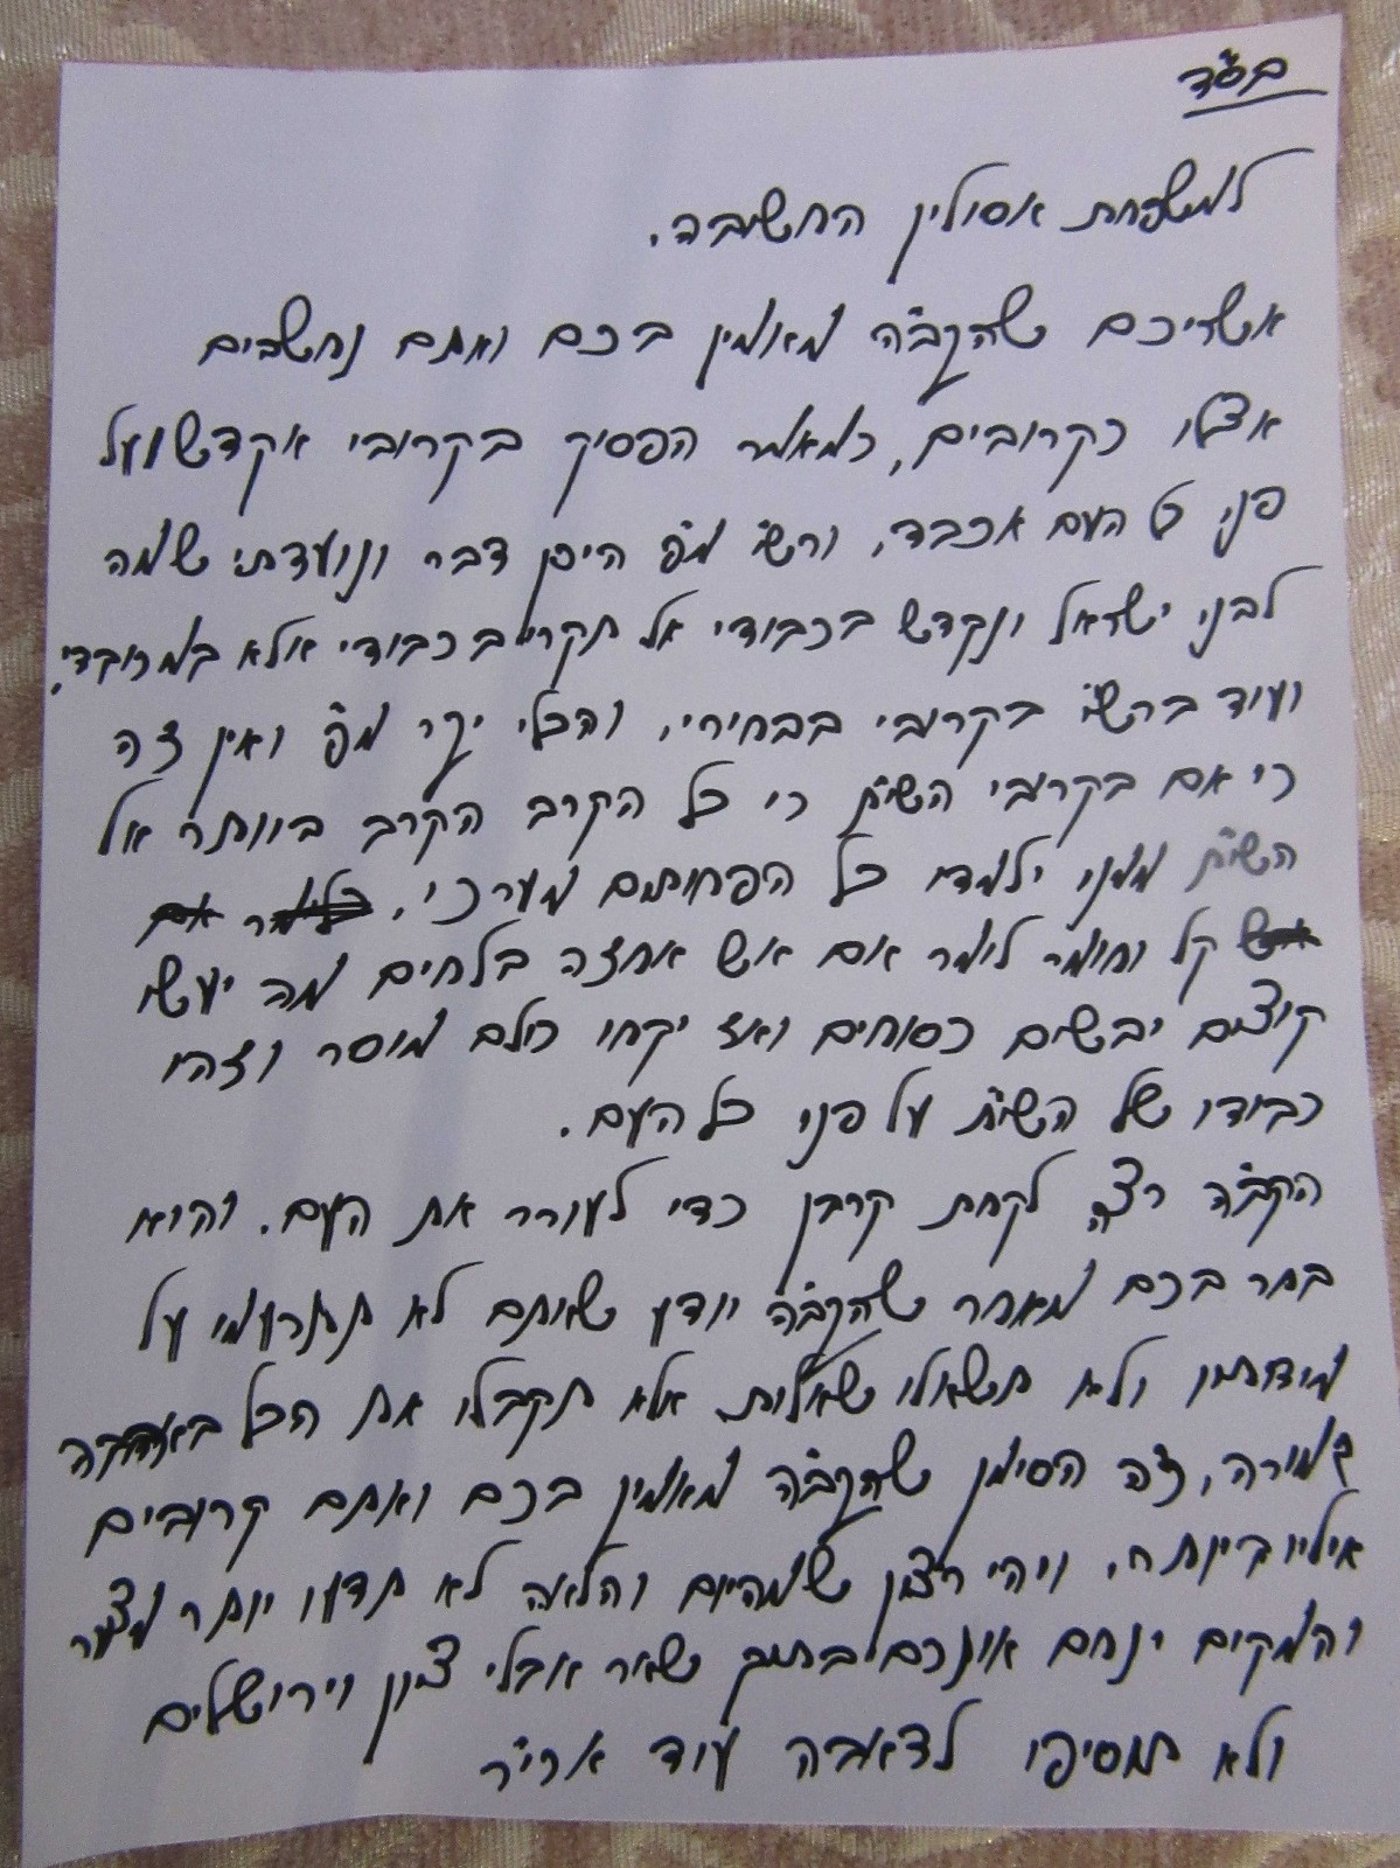 בס"ד
למשפחת אסולין החשובה.
אשריכם שהקב"ה מאומין בכם ואתם נחשבים
אצלו כקרובים, כמאמר הפסוק בקרובי אקדש ועל
פני כל העם אכבד, ורש"י מפ' היכן דבר ונועדתי שמה
לבני ישראל ונקדש בכבודי אל תקרי בכבודי אולא במכובדי,
ועוד ברש"י בקרובי בבחירי, והכלי יקר מפ' ואין זה
כי אם בקרובי השי"ת כי כל הקרב הקרב ביותר אל
השי"ת ממנו ילמדו כל הפחותים מערכו,
קל וחומר לומר אם אש אחזה בלחים מה יעשו
קוצים יבשים כסוחים ואז יקחו כולם מוסר וזהו
כבודו של השי"ת על פני כל העם.
הקב"ה רצה לקחת קרבן כדי לעורר את העם. והוא
בחר בכם מאחר שהקב"ה יודע שאתם לא תתרעמו על
מידותיו ולא תשאלו שאלות אלא תקבלו את הכל באהבה
גמורה, זה הסימן שהקב"ה מאמין בכם ואתם קרובים
איליו ביותר, ויהי רצון שמהיום והלאה לא תדעו יותר מצער
והמקום ינחם אותכם בתוך שאר אבלי ציון וירושלים
ולא תוסיפו לדאבה עוד אכי"ר